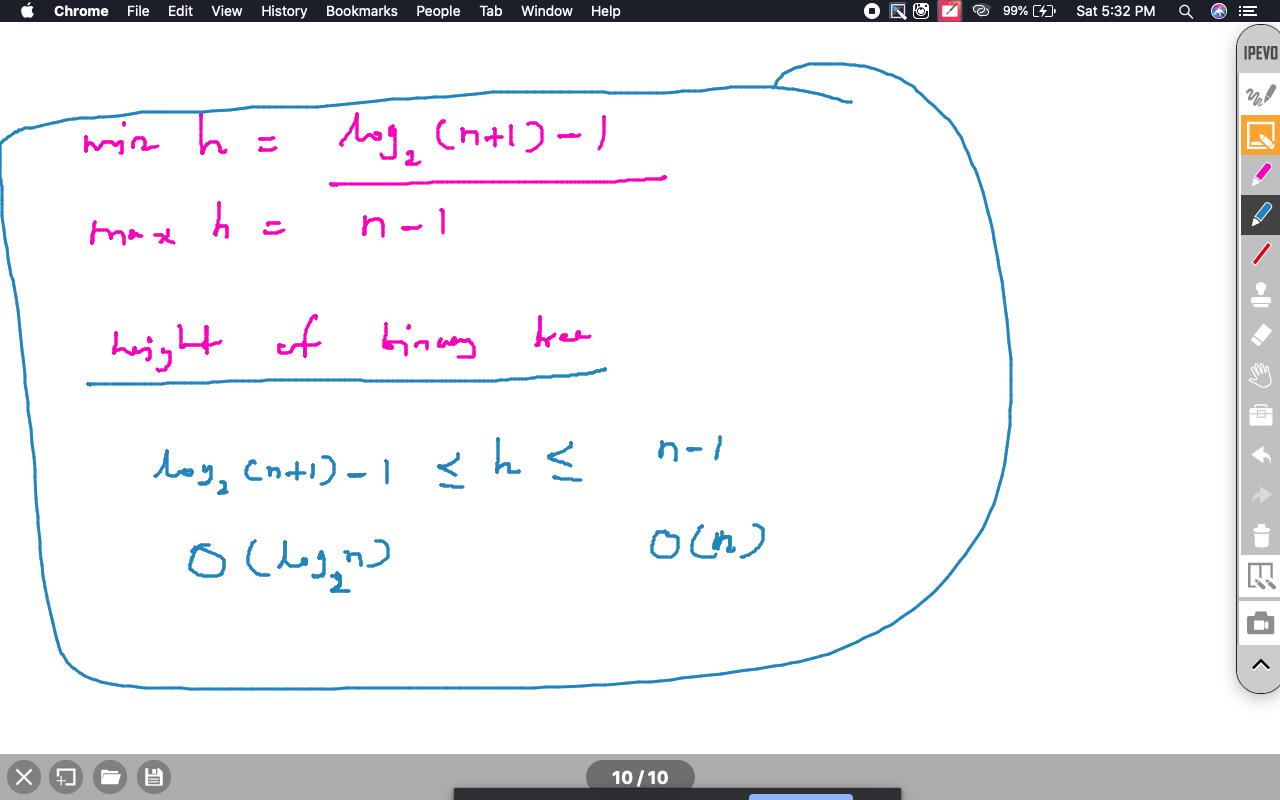 Chrome File Edit View History Bookmarks People Tab Window Help 99% Sat 5:32 PM
IPEVO
min h = log₂ (n+1) - 1
max h = n - 1
height of binary tree
log₂ (n+1) - 1 ≤ h ≤ n - 1
O (log₂n) O(n)
10 / 10